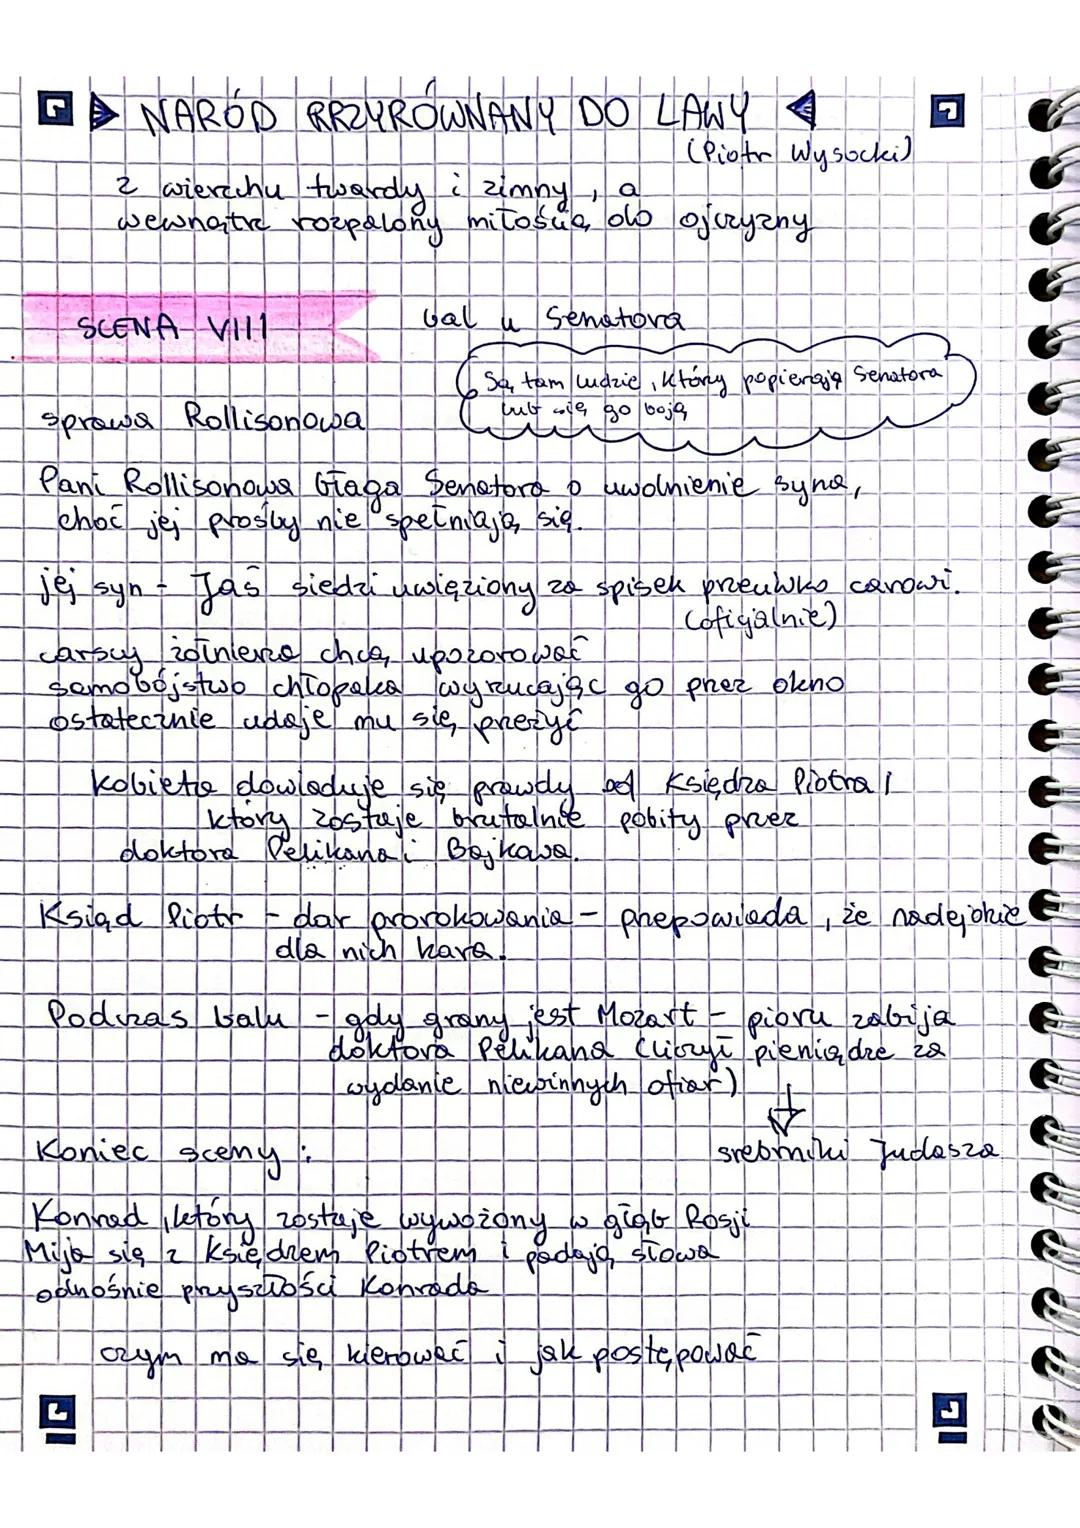 NARÓD PRZYRÓWNANY DO LAWY
(Piotr Wysocki)
z wierzchu twardy i zimny, a
wewnątrz rozpalony miłością do ojczyzny
SCENA VIII
bal u Senatora
Są tam ludzie, którzy popierają Senatora
lub się go boją
sprawa Rollisonowa
Pani Rollisonowa błaga Senatora o uwolnienie syna,
choć jej prośby nie spełniają się.
jej syn - Jaś siedzi uwięziony za spisek przeciwko carowi.
(oficjalnie)
carscy żołnierze chcą upozorować
samobójstwo chłopaka wyrzucając go przez okno
ostatecznie udaje mu się przeżyć
kobieta dowiaduje się prawdy od Księdza Piotra,
który zostaje brutalnie pobity przez
doktora Pelikana i Bajkowa.
Ksiąd Piotr - dar prorokowania - przepowiada, że nadejdzie
dla nich kara.
Podczas balu - gdy grany jest Mozart - piorun zabija
doktora Pelikana (liczył pieniądze za
wydanie niewinnych ofiar)
srebrniki Judasza
Koniec sceny:
Konrad, który zostaje wywożony w głąb Rosji
Mija się z Księdzem Piotrem i padają słowa
odnośnie przyszłości Konrada
czym ma się kierować i jak postępować